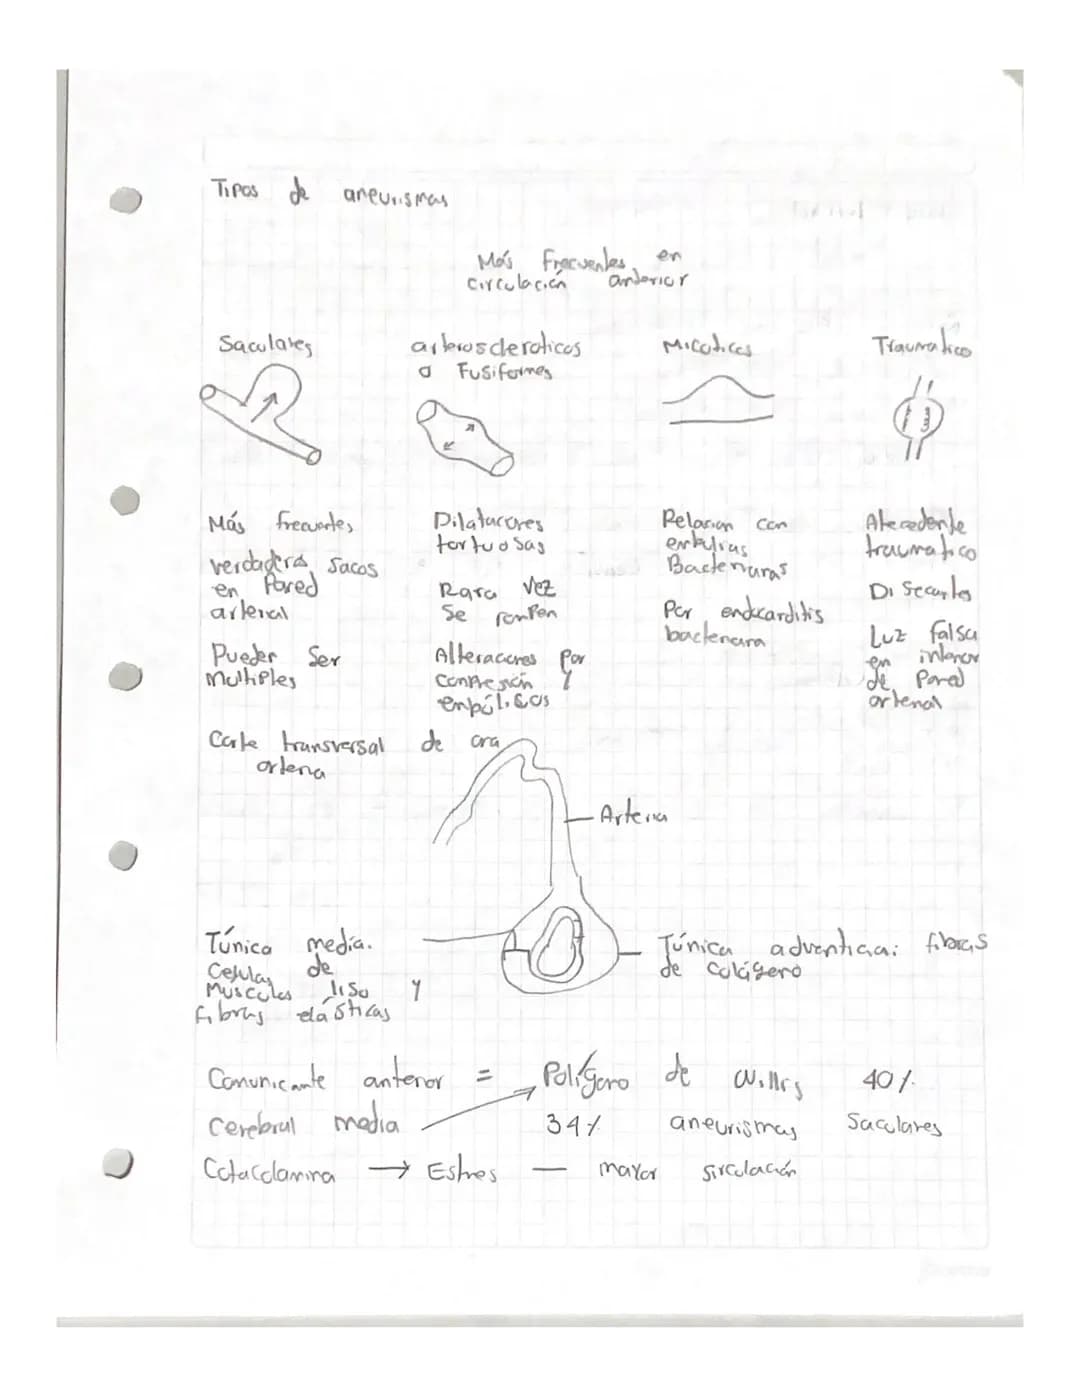 Tipos de aneurismas
Más Frecuentes en
circulación anterior
Saculares
arterioscleroticos
o Fusiformes
Micoticos
Traumatico
Más frecuentes
verdaderos sacos
en Pared
arterial
Pueden Ser
Multiples
Dilataciones
tortuosas
Rara vez
Se rompen
Alteraciones Por
Compresión Y
embólicos
Relacion con
embolias
Bacterianas
Por endocarditis
bacteriana
Atecedente
traumatico
Disecantes
Luz falsa
en interior
de Pared
arterial
Corte transversal de ora
arteria
Arteria
Túnica media.
Celulas de
Musculos liso Y
fibras elásticas
Túnica adventicia: fibras
de colágeno
Comunicante anterior = Polígono de Willis 40%
Cerebral media 34% aneurismas Saculares
Catacolamina → Estres — mayor sirculación